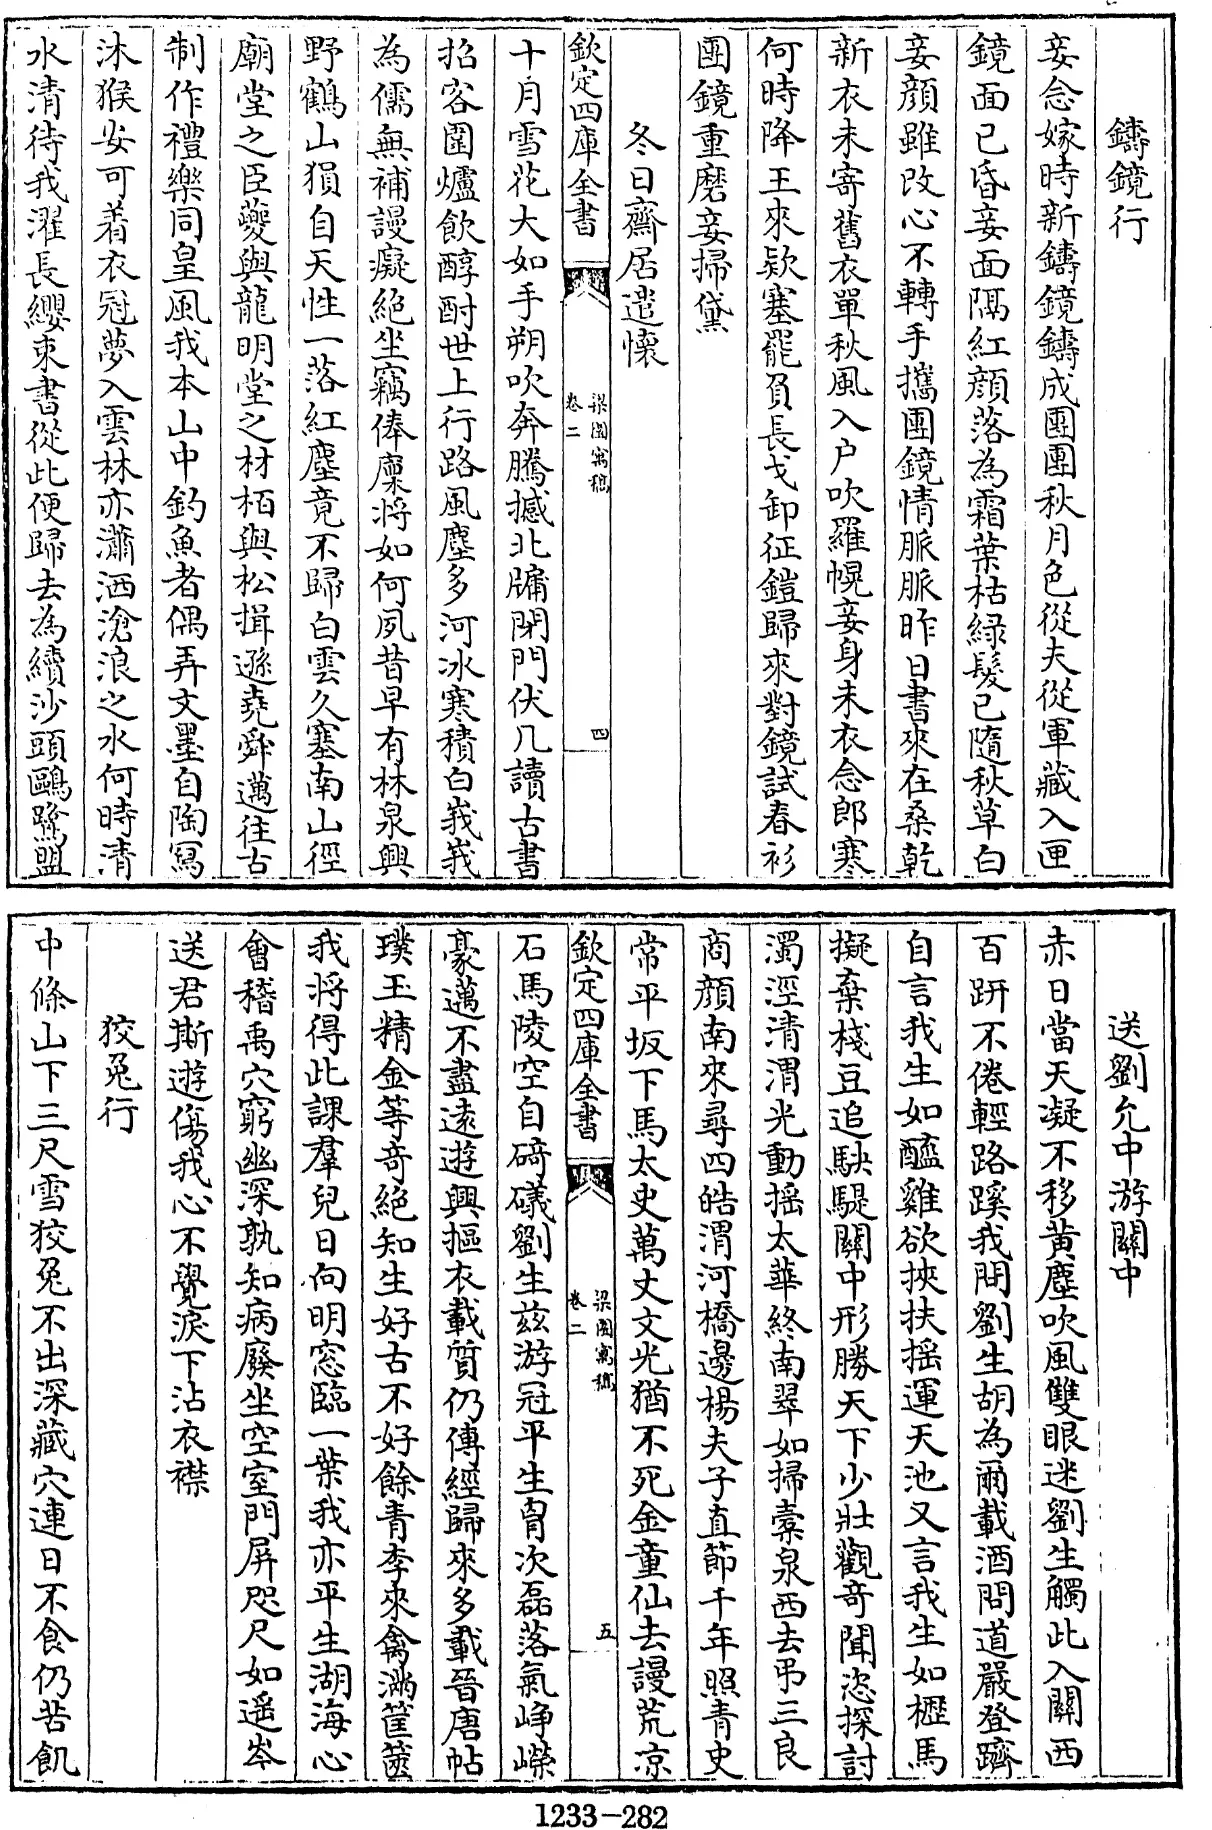 鑄鏡行
妾念嫁時新鑄鏡鑄成團團秋月色從夫從軍藏入匣
鏡面已昏妾面隔紅顔落為霜葉枯綠髮已隨秋草白
妾顔雖改心不轉手攜團鏡情脈脈昨日書來在桑乾
新衣未寄舊衣單秋風入户吹羅幌妾身未衣念郎寒
何時降王來欵塞罷負長戈卸征鎧歸來對鏡試春衫
團鏡重磨妾掃黛
冬日齋居遣懷
欽定四庫全書
梁園寓稿
卷二
四
十月雪花大如手朔吹奔騰撼北牖閉門伏几讀古書
招客圍爐飲醇酎世上行路風塵多河冰寒積白峩峩
為儒無補謾癡絶坐竊俸廩將如何夙昔早有林泉興
野鶴山猿自天性一落紅塵竟不歸白雲久塞南山徑
廟堂之臣夔與龍明堂之材栢與松揖遜堯舜邁往古
制作禮樂同皇風我本山中釣魚者偶弄文墨自陶冩
沐猴安可着衣冠夢入雲林亦瀟洒滄浪之水何時清
水清待我濯長纓束書從此便歸去為續沙頭鷗鷺盟
送劉允中游關中
赤日當天凝不移黄塵吹風雙眼迷劉生觸此入關西
百趼不倦輕路蹊我問劉生胡為爾載酒問道嚴登躋
自言我生如醯雞欲挾扶摇運天池又言我生如櫪馬
擬棄棧豆追駃騠關中形勝天下少壯觀奇聞恣探討
濁涇清渭光動揺太華終南翠如掃橐泉西去弔三良
商顔南來尋四皓渭河橋邊楊夫子直節千年照青史
常平坂下馬太史萬丈文光猶不死金童仙去謾荒凉
欽定四庫全書
梁園寓稿
卷二
五
石馬陵空自碕礒劉生兹游冠平生胷次磊落氣峥嶸
豪邁不盡遠遊興摳衣載質仍傳經歸來多載晉唐帖
璞玉精金等奇絶知生好古不好餘青李來禽滿筐篋
我將得此課羣兒日向明窓臨一葉我亦平生湖海心
會稽禹穴窮幽深孰知病廢坐空室門屏咫尺如遥岑
送君斯遊傷我心不覺淚下沾衣襟
狡兎行
中條山下三尺雪狡兎不出深藏穴連日不食仍苦飢
1233-282